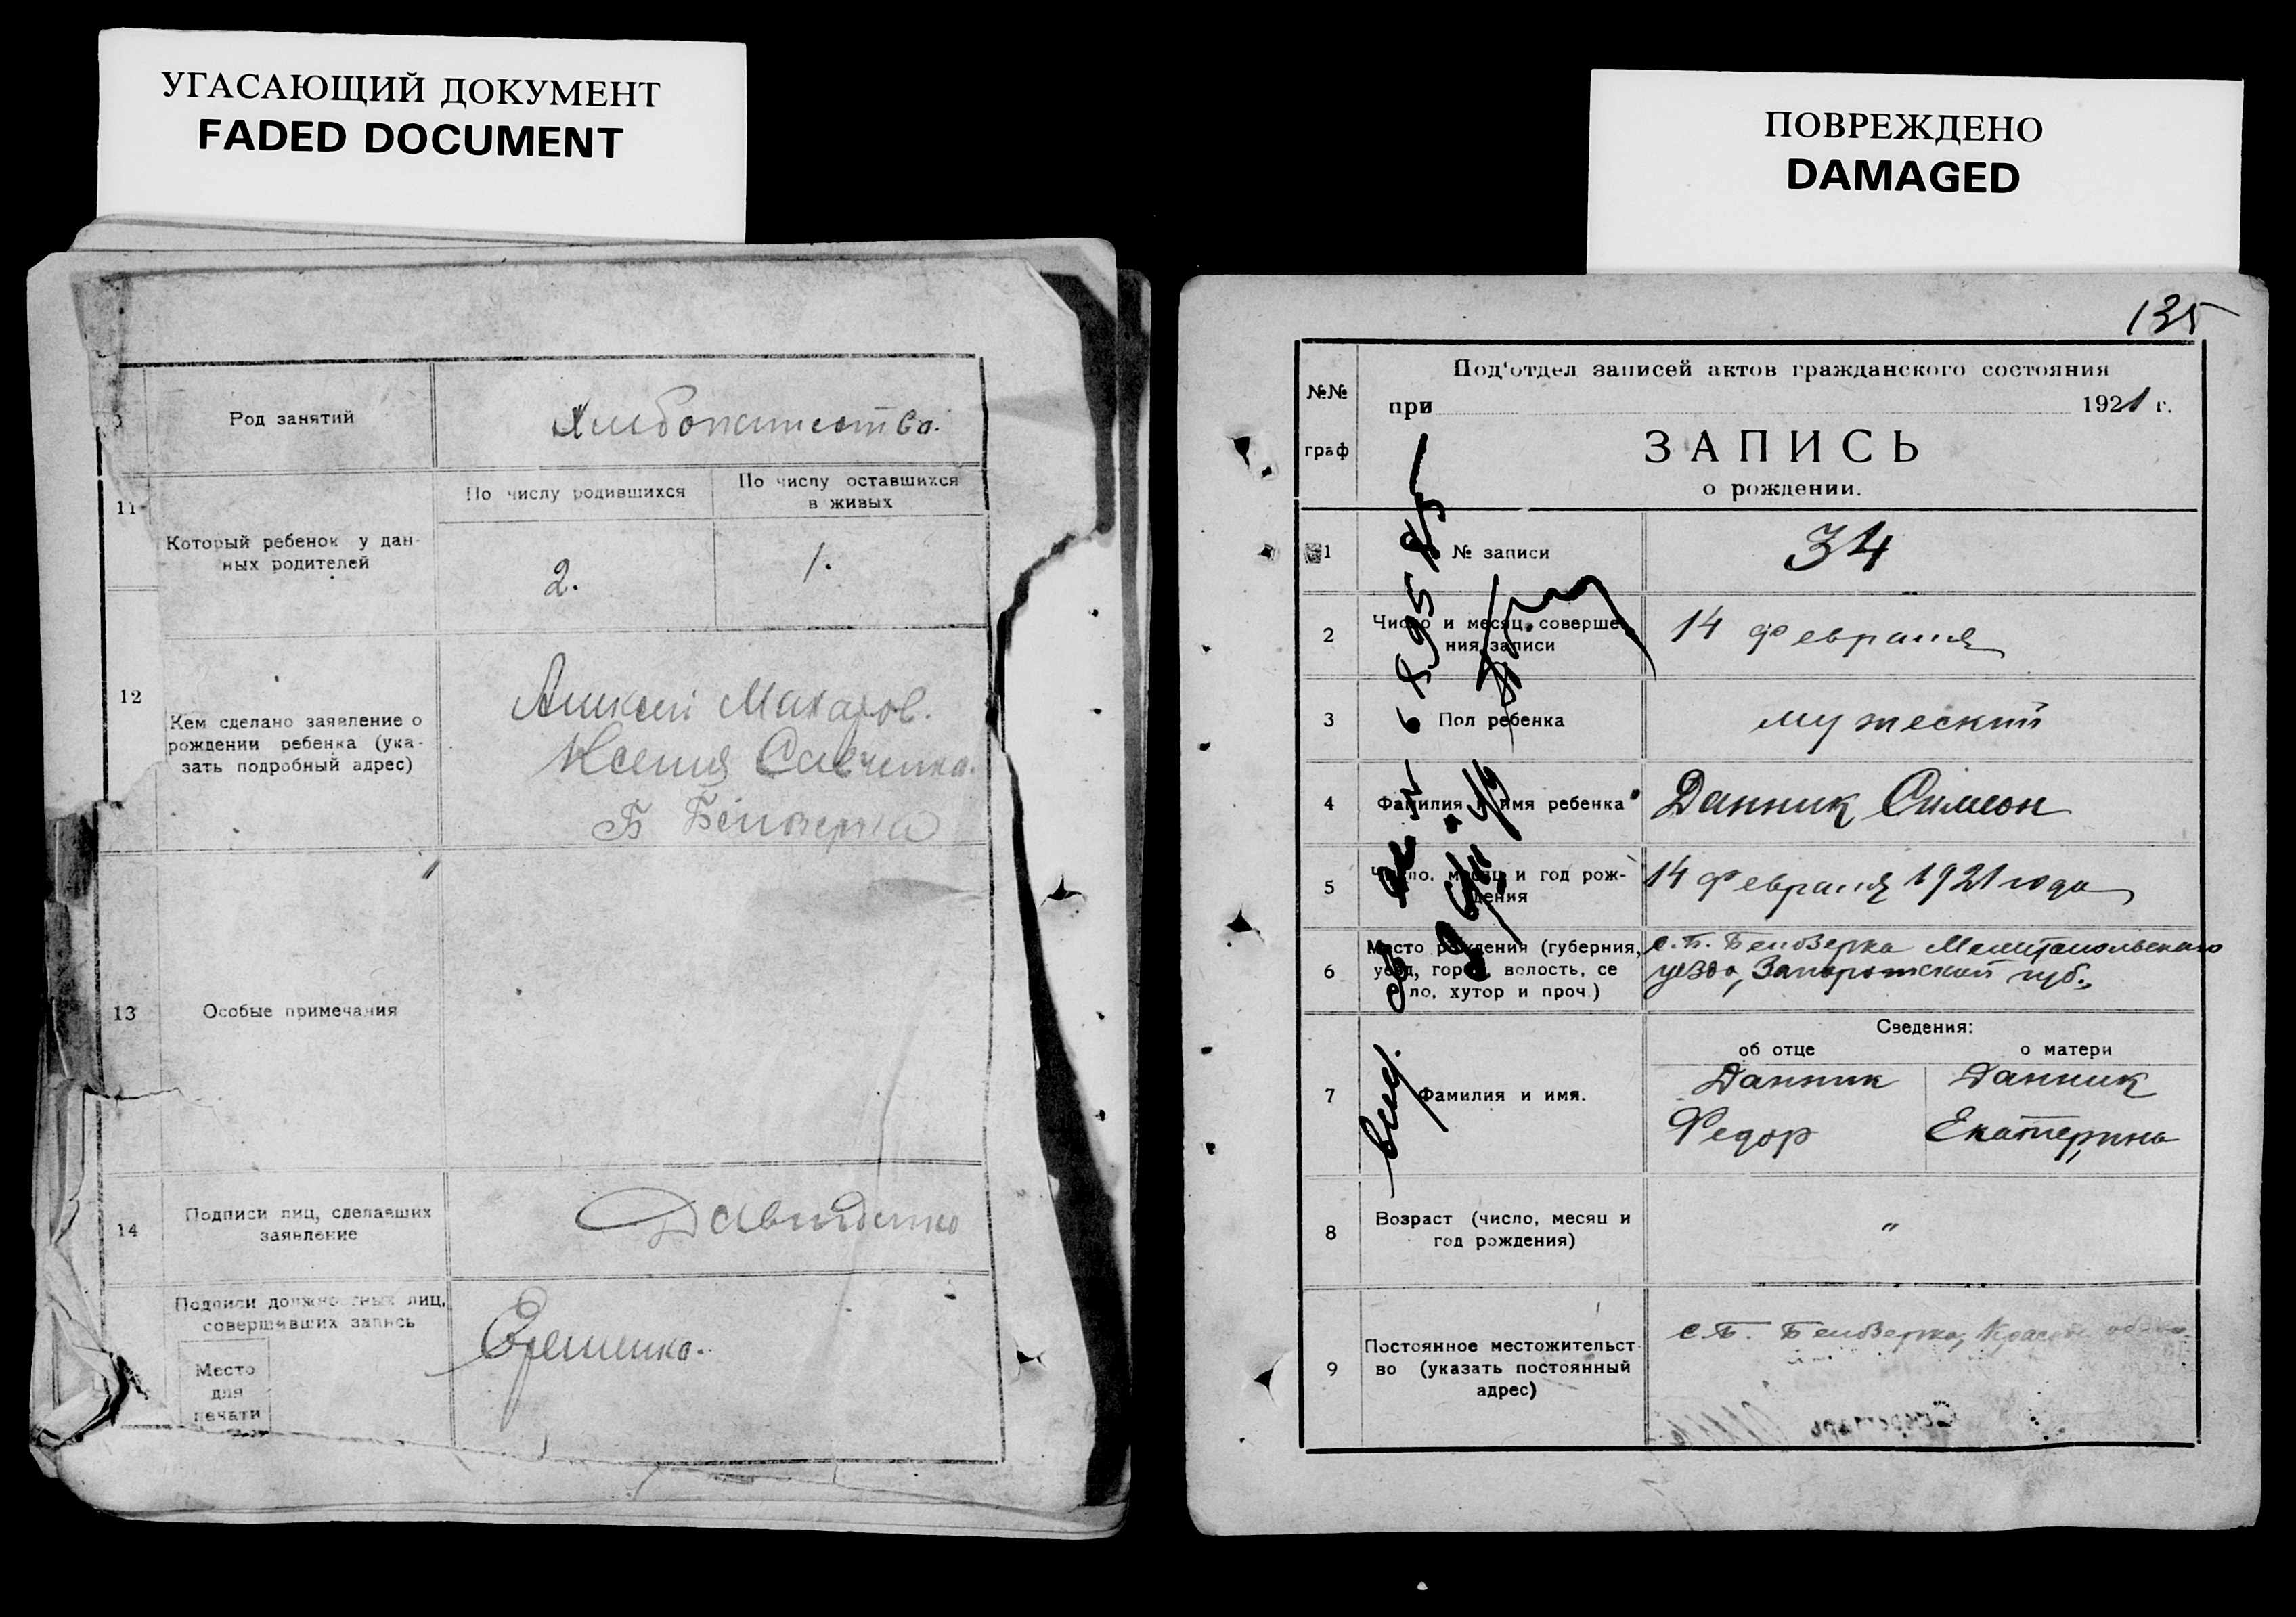 УГАСАЮЩИЙ ДОКУМЕНТ
FADED DOCUMENT
Род занятий
11
Который ребенок у дан-
ных родителей
По числу родившихся
По числу оставшихся
в живых
2.
1.
12
Кем сделано заявление о
рождении ребенка (ука-
зать подробный адрес)
Алексей Макаров.
Ксения Савченко.
Б Белозерка
13
Особые примечания
14
Подписи лиц, сделавших
заявление
Давиденко
Подписи должностных лиц,
совершивших запись
Место
для
печати
Еременко.
ПОВРЕЖДЕНО
DAMAGED
135
№№
граф
Под'отдел записей актов гражданского состояния
при 1921 г.
ЗАПИСЬ
о рождении.
1
№ записи
34
2
Число и месяц соверше-
ния записи
14 февраля
3
Пол ребенка
мужеский
4
Фамилия и имя ребенка
Данник Симеон
5
Число, месяц и год рож-
дения
14 февраля 1921 года
6
Место рождения (губерния,
уезд, город, волость, се
ло, хутор и проч.)
с. Б. Белозерка Мелитопольского
уезда, Запорожской губ.
7
Фамилия и имя.
Сведения:
об отце
о матери
Данник
Федор
Данник
Екатерина
8
Возраст (число, месяц и
год рождения)
"
9
Постоянное местожительст
во (указать постоянный
адрес)
с. Б. Белозерка,